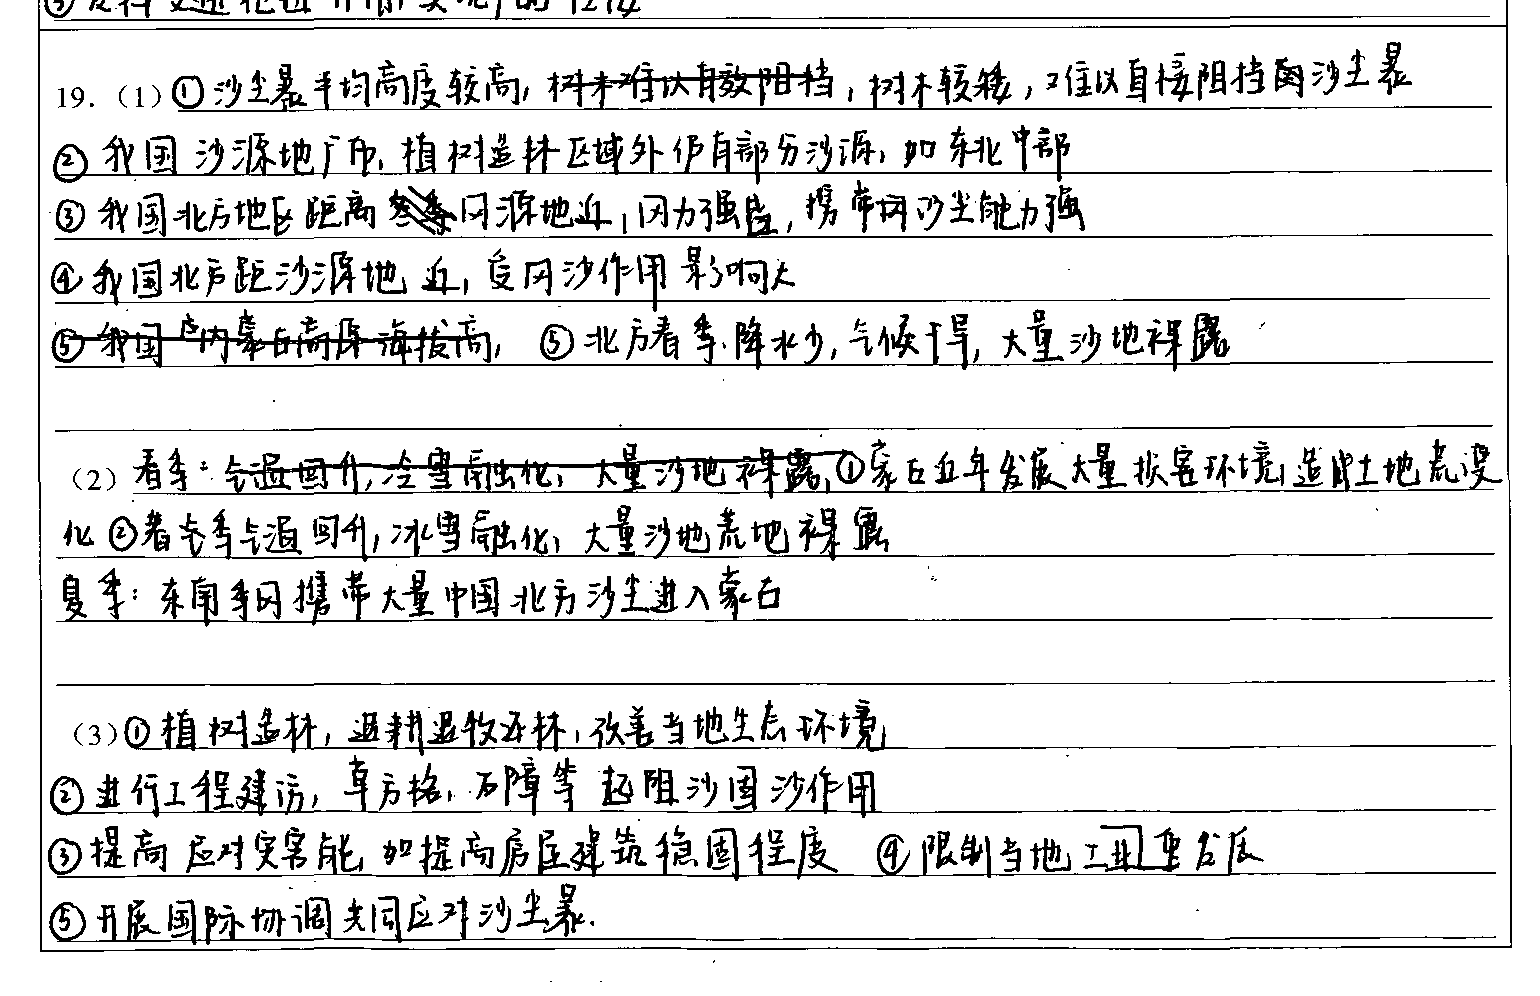 19.（1）①沙尘暴平均高度较高，树木难以有效阻挡，树木较矮，难以直接阻挡沙尘暴
②我国沙源地广布，植树造林区域外仍有部分沙源，如东北中部
③我国北方地区距离冬季风源地近，风力强盛，携带风沙尘能力强
④我国北方距沙源地近，受风沙作用影响大
⑤我国内蒙古高原海拔高，⑤北方春季降水少，气候干旱，大量沙地裸露
（2）春季：气温回升，冷雪融化，大量沙地裸露，①蒙古近年发展大量损害环境，造成土地荒漠
化②春季气温回升，冰雪融化，大量沙地荒地裸露
夏季：东南季风携带大量中国北方沙尘进入蒙古
（3）①植树造林，退耕退牧还林，改善当地生态环境
②进行工程建访，草方格，石障等起阻沙固沙作用
③提高应对灾害能，如提高房屋建筑稳固程度 ④限制当地工业发展
⑤开展国际协调共同应对沙尘暴.